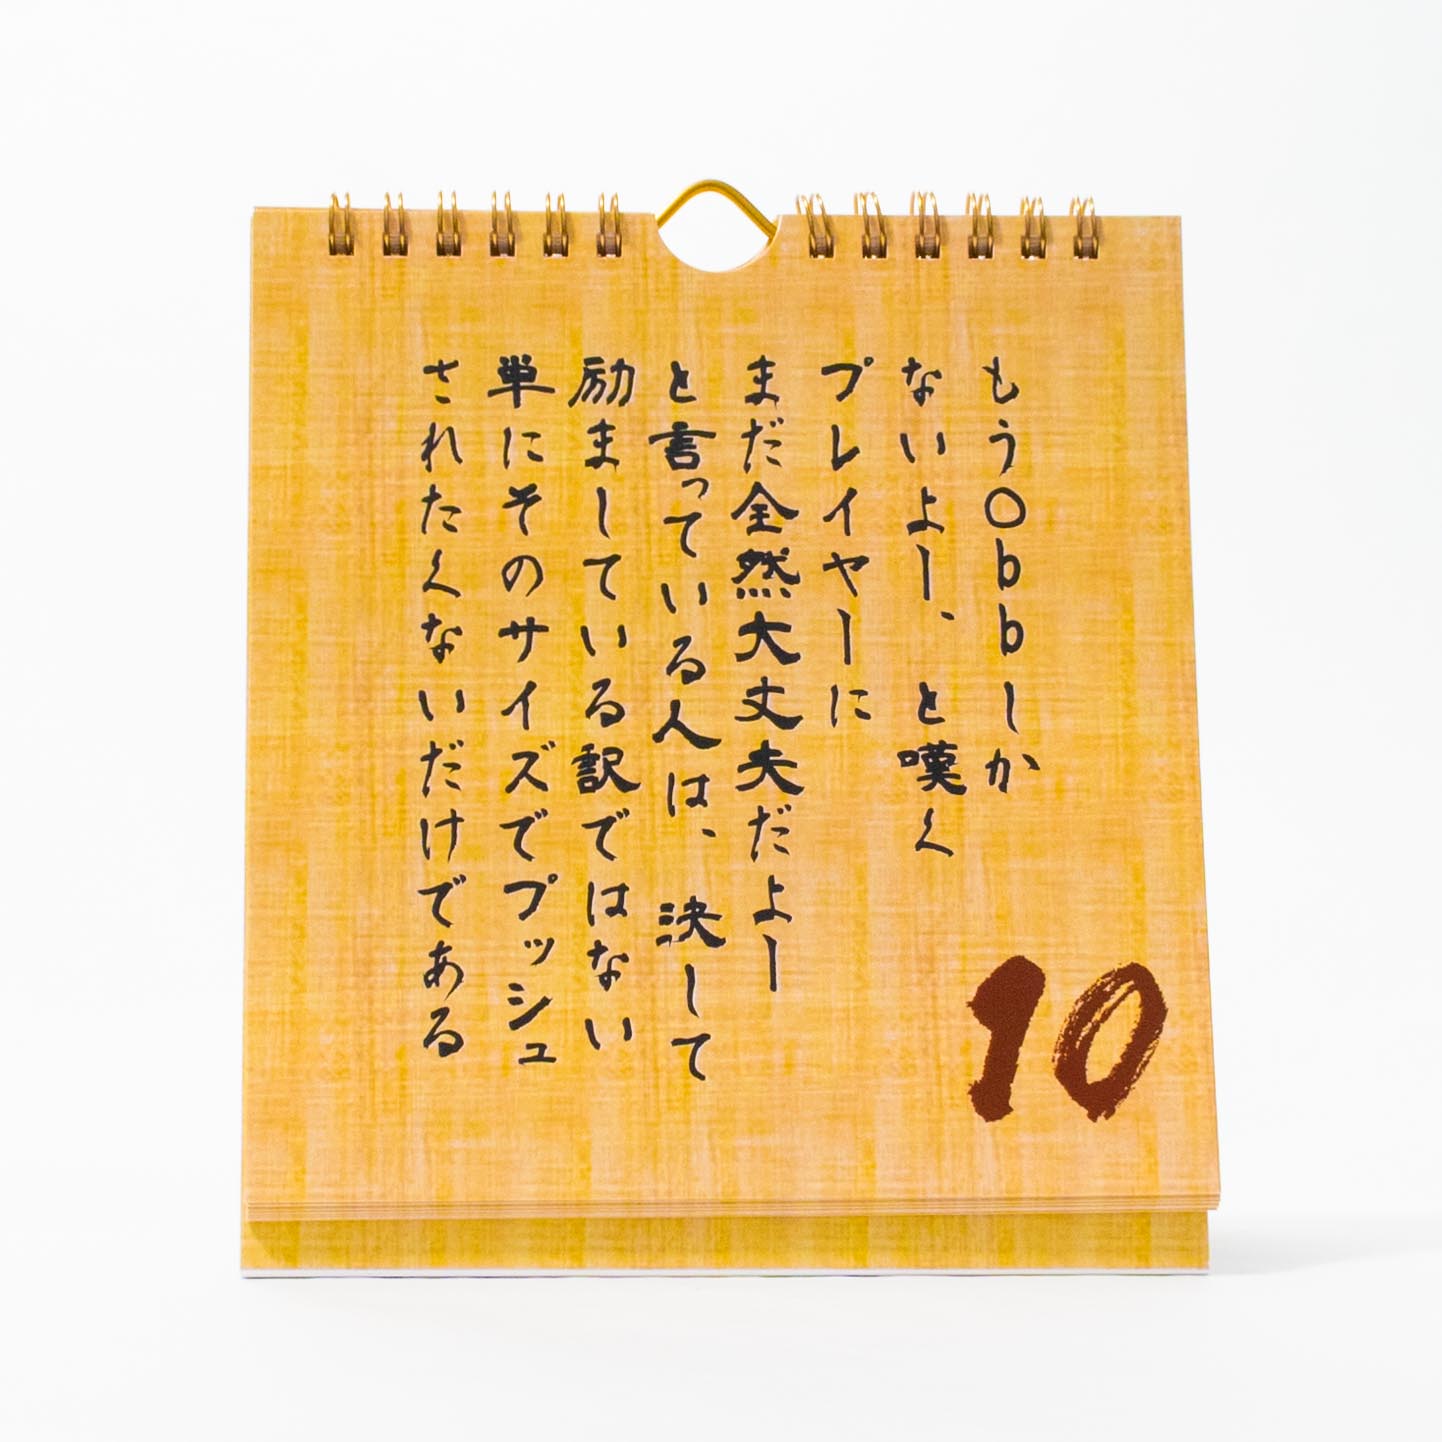 もう〇bbしか
ないよー、と嘆く
プレイヤーに
まだ全然大丈夫だよー
と言っている人は、決して
励ましている訳ではない
単にそのサイズでプッシュ
されたくないだけである
10